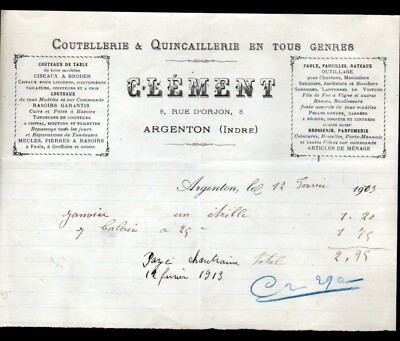 COUTELLERIE & QUINCAILLERIE EN TOUS GENRES
COUTEAUX DE TABLE
de tous modèles
CISEAUX A BRODER
CISEAUX POUR LINGÈRES, COUTURIÈRES
TAILLEURS, COIFFEURS ET A CRIN
COUTEAUX
de tous Modèles et sur Commande
RASOIRS GARANTIS
Cuirs et Pâtes à Rasoirs
TONDEUSES DE COIFFEURS
A CHEVAL, MOUTONS ET TOILETTES
Repassage tous les jours
et Réparations de Tondeuses
MEULES, PIERRES A RASOIRS
à Faulx, à Greffoirs et autres
C. LÉMENT
8, RUE D'ORJON, 8
ARGENTON (INDRE)
FAULX, FAUCILLES, RATEAUX
OUTILLAGE
pour Charrons, Menuisiers
Sabotiers, Jardiniers et Bouchers
SONNETTES, LANTERNES DE VOITURES
Fils de Fer à Vigne et autres
Ronces, Bouilleurs
fonte émaillée de tous modèles
PELLES RONDES, CARRÉES
BROSSERIE, PARFUMERIE
Ceintures, Bretelles, Porte-Monnaie
et toutes Pièces sur commande
ARTICLES DE MÉNAGE
Argenton, le 12 Février 1903
janvier un étrille 1.20
7 à 25 " 1 75
Payé Total 2,95
12 février 1913